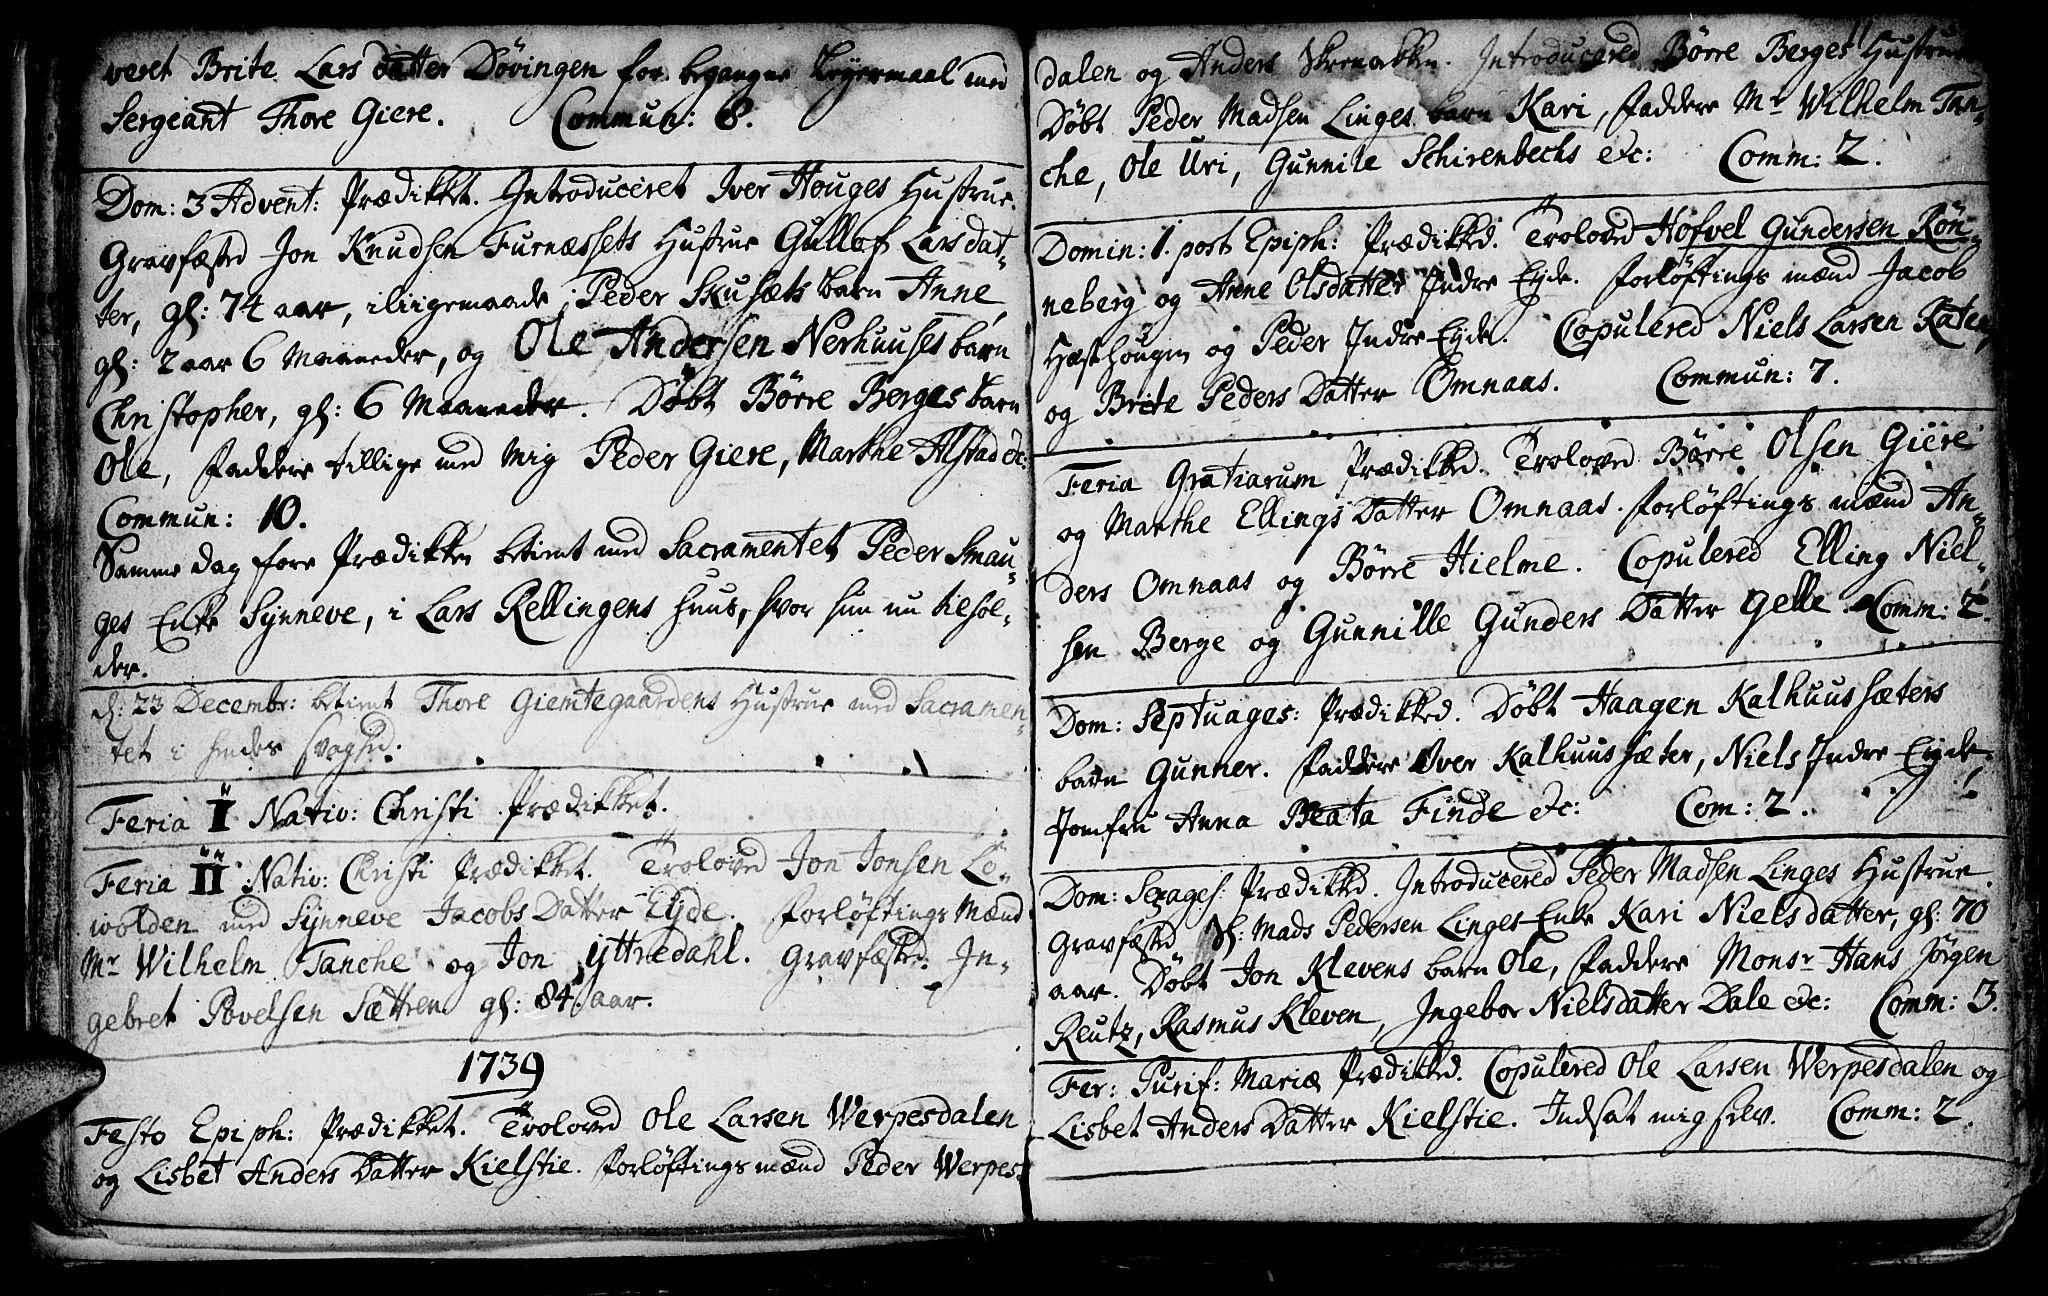 veret Brite Lars datter Døvingen for begangne Leyermaal med
Sergeant Thore Giere. Commun: 8.
Dom: 3 Advent: Prædikket. Introduceret Iver Houges Hustrue.
Gravfæsted Jon Knudsen Furnæssets Hustrue Gullof Larsdat-
ter, gl: 74 aar, iligemaade Peder Skusæts barn Anne
gl: 2 aar 6 Maaneder, og Ole Andersen Nerhuuses barn
Christopher, gl: 6 Maaneder. Døbt Børre Berges barn
Ole, faddere tillige med mig Peder Giere, Marthe Alstad etc:
Commun: 10.
Samme dag fore Prædikken betient med Sacramentet Peder Smau-
ges Enke Synneve, i Lars Rellingens huus, hvor hun nu tilhol-
der.
d: 23 Decembr: betient Thore Giemtegaardens Hustrue med Sacramen-
tet i hendes svaghed.
Feria I Nativ: Christi Prædikket.
Feria II Nativ: Christi Prædikket. Troloved Jon Jonsen Lö-
wolden med Synneve Jacobs Datter Eyde. forløftings Mænd
Mr Wilhelm Tanche og Jon Yttredahl. Gravfæsted In-
gebret Povelsen Sættren gl: 84 aar.
1739
Festo Epiph: Prædikket. Troloved Ole Larsen Werpesdalen
og Lisbet Anders Datter Kielstie. forløftings mænd Peder Werpes-
dalen og Anders Introducered Børre Berges Hustrue
Døbt Peder Madsen Linges barn Kari, faddere Mr Wilhelm Tan-
che, Ole Uri, Gunnile Schirenbechs etc: Comm: 2.
Domin: 1. post Epiph: Prædikked. Troloved Hofvel Gundersen Røn-
neberg og Anne Olsdatter Indre Eyde. forløftings mænd Jacob
Hæsthougen og Peder Indre Eyde. Copulered Niels Larsen Raten,
og Brite Peders Datter Omnaas. Commun: 7.
Feria Gratiarum Prædikked. Troloved Børre Olsen Giere
og Marthe Ellings Datter Omnaas. forløftings mænd An-
ders Omnaas og Børre Hielme. Copulered Elling Niel-
sen Berge og Gunnille Gunders Datter Gelle. Comm: 2.
Dom: Septuages: Prædikked. Døbt Haagen Kalhuussæters
barn Gunner. faddere Iver Kalhuussæter, Niels Indre Eyde
Jomfru Anna Beata Finde etc: Com: 2.
Dom: Sexages: Prædikked. Introducered Peder Madsen Linges Hustrue.
Gravfæsted Sl: Mads Pedersen Linges Enke Kari Nielsdatter, gl: 70
aar. Døbt Jon Klevens barn Ole, faddere Monsr Hans Jörgen
Reutz, Rasmus Kleven, Ingebor Nielsdatter Dale etc: Comm: 3.
Fer: Purif: Mariæ Prædikked. Copulered Ole Larsen Werpesdalen og
Lisbet Anders Datter Kielstie. Indsat mig selv. Comm: 2.